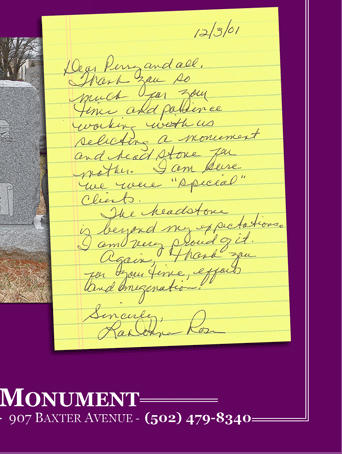 12/3/01
Dear Perry and all,
Thank you so
much for your
time and patience
working with us
selecting a monument
and headstone for
mother. I am sure
we were "special"
clients.
The headstone
is beyond my expectations.
I am very proud of it.
Again, thank you
for your time, efforts
and imagination!
Sincerely,
MONUMENT
907 BAXTER AVENUE - (502) 479-8340